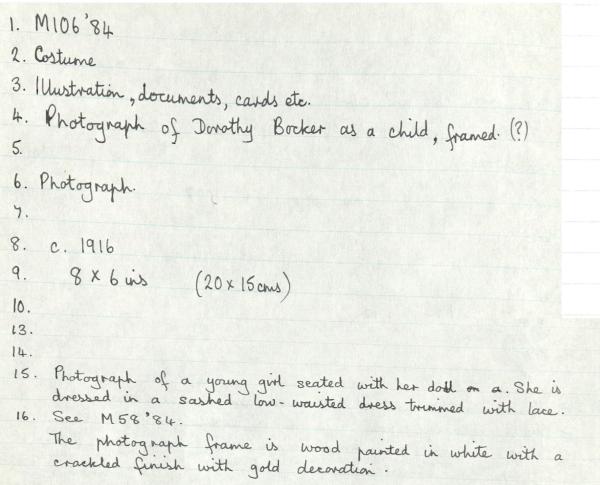 1. M106'84
2. Costume
3. Illustration, documents, cards etc.
4. Photograph of Dorothy Bocker as a child, framed. (?)
5.
6. Photograph.
7.
8. c. 1916
9. 8 x 6 ins (20 x 15 cms)
10.
13.
14.
15. Photograph of a young girl seated with her doll on a. She is
dressed in a sashed low-waisted dress trimmed with lace.
16. See M58'84.
The photograph frame is wood painted in white with a
crackled finish with gold decoration.